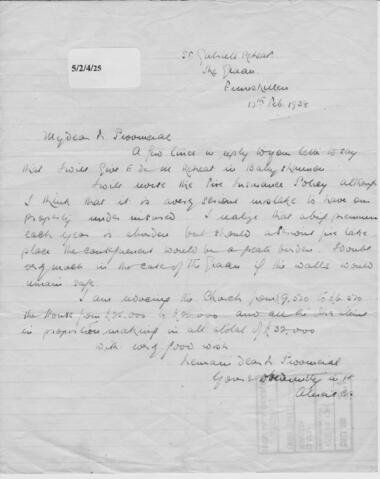 5/2/4/25
St Gabriel's Retreat
The Graan
Enniskillen
17th Feb. 1938
My Dear Fr Provincial
A few lines in reply to your letter to say
that I will give E de M Retreat in Ballyshannon
I will revise the Fire Insurance Policy although
I think that it is a very serious mistake to have our
property under insured. I realize that a big premium
each year is a burden but should a serious fire take
place the consequences would be a greater burden. I doubt
very much in the case of the Graan if the walls would
remain safe.
I am reducing the Church from £9,550 to £6,550
the House from £26,000 to £20,000 and all the other items
in proportion making in all a total of £32,000
With very good wishes
I remain Dear Fr Provincial
Yours obediently in